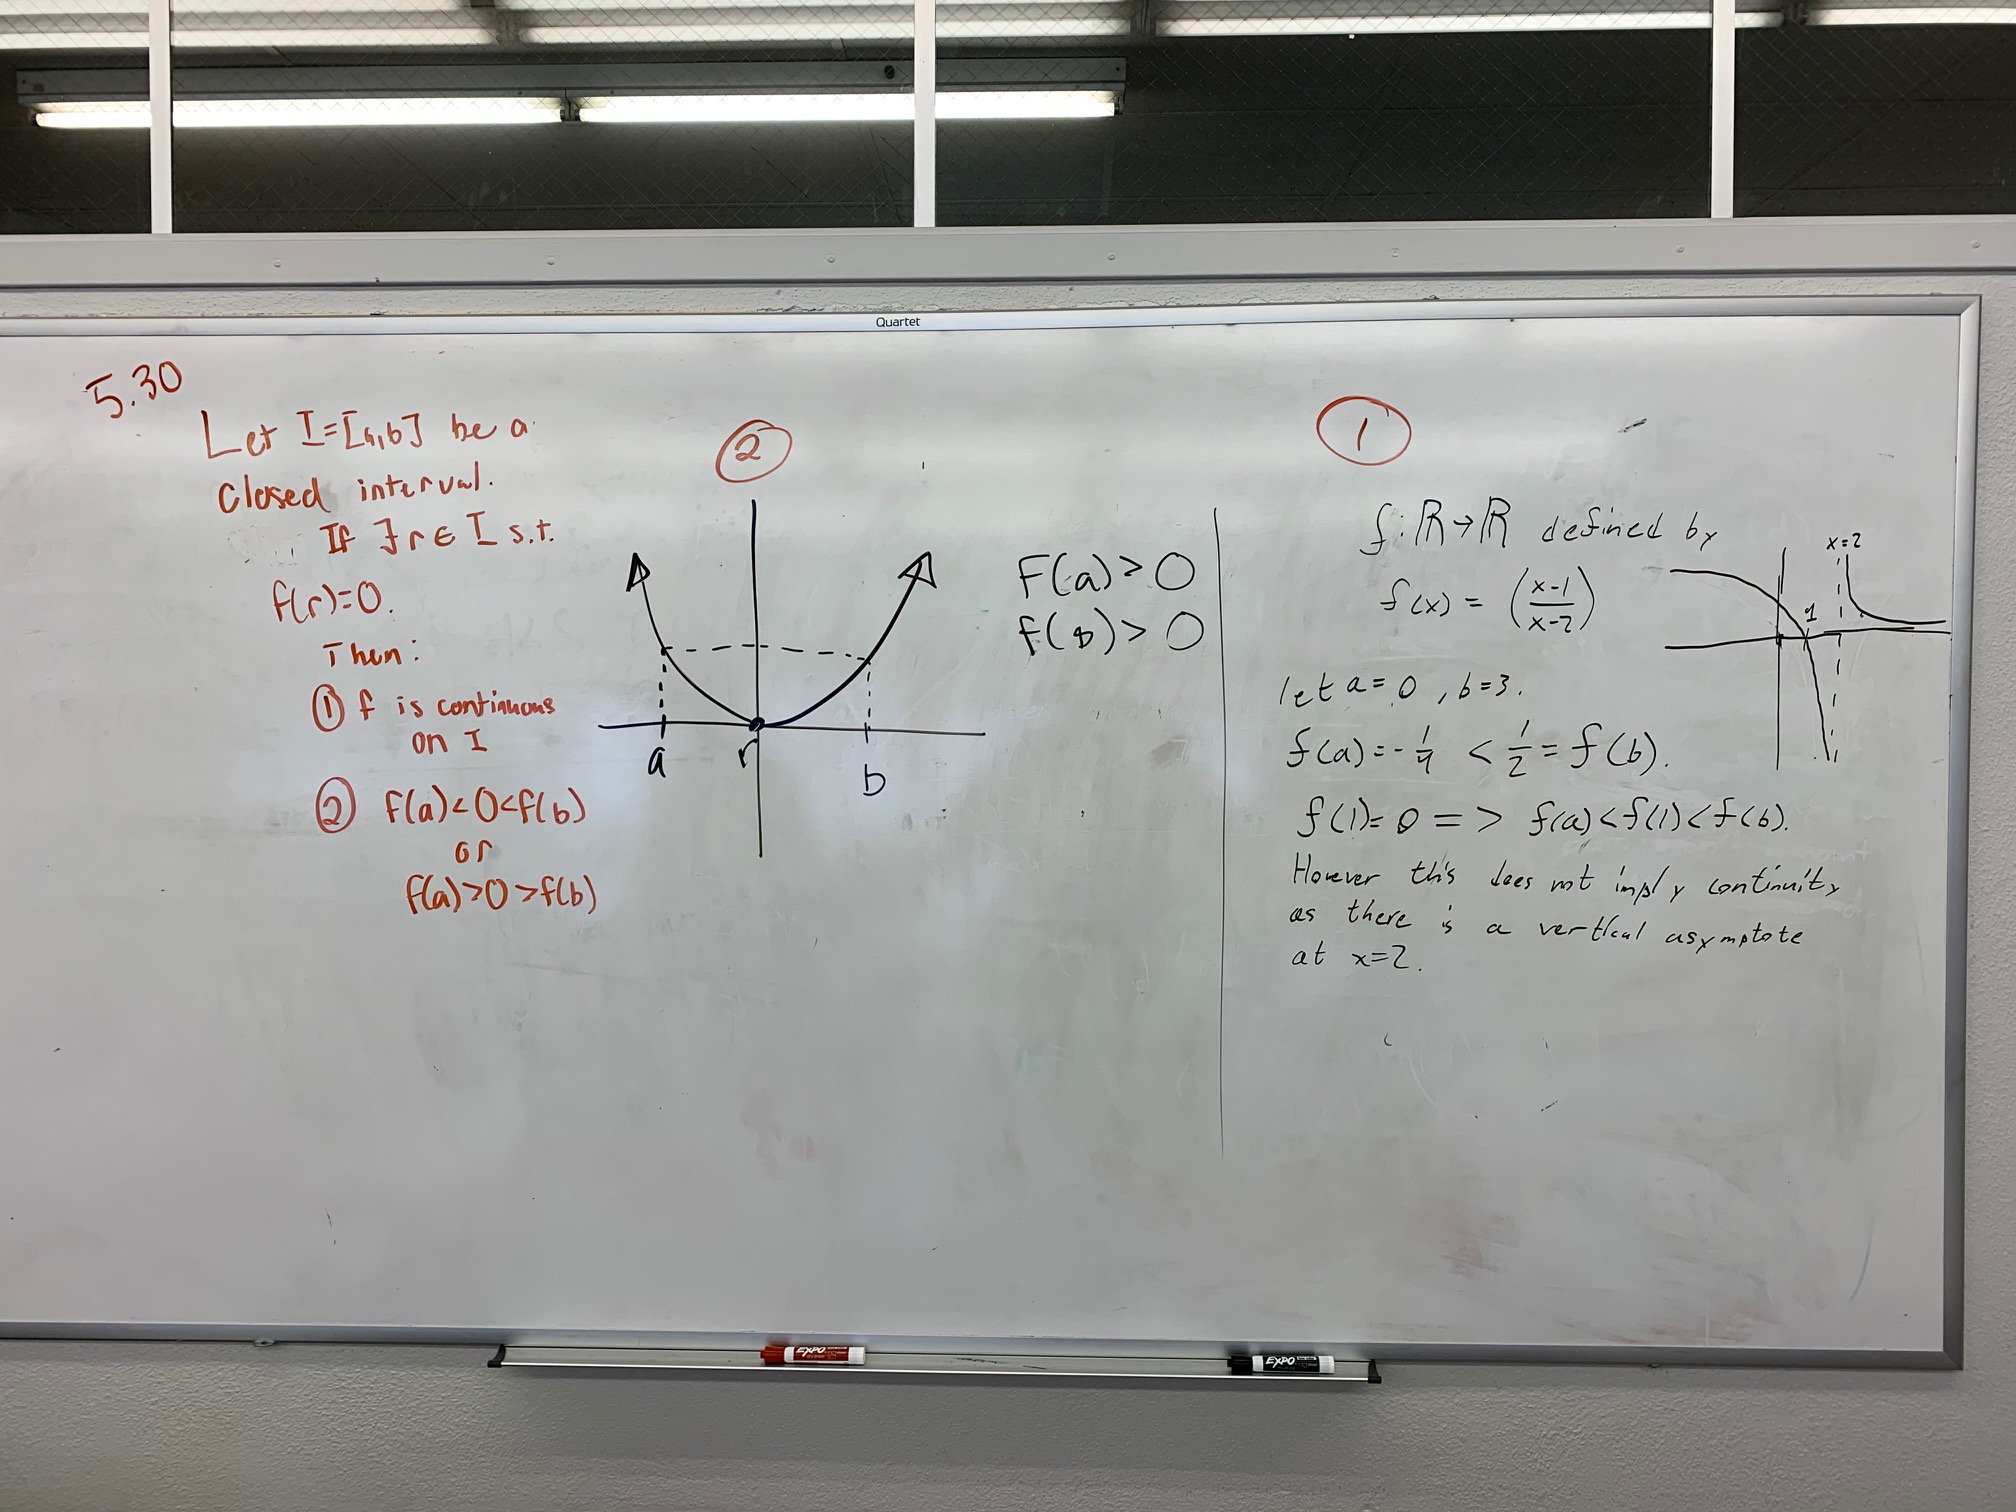 Quartet
5.30
Let I=[a,b] be a
closed interval.
If ∃ r ∈ I s.t.
f(r)=0.
Then:
① f is continuous
on I
② f(a)<0<f(b)
or
f(a)>0>f(b)
②
a
r
b
F(a)>0
f(b)>0
①
f:ℝ→ℝ defined by
f(x) = (x-1/x-2)
x=2
1
let a=0, b=3.
f(a)=-1/4 < 1/2 = f(b).
f(1)=0 => f(a)<f(1)<f(b).
However this does not imply continuity
as there is a vertical asymptote
at x=2.
EXPO
EXPO